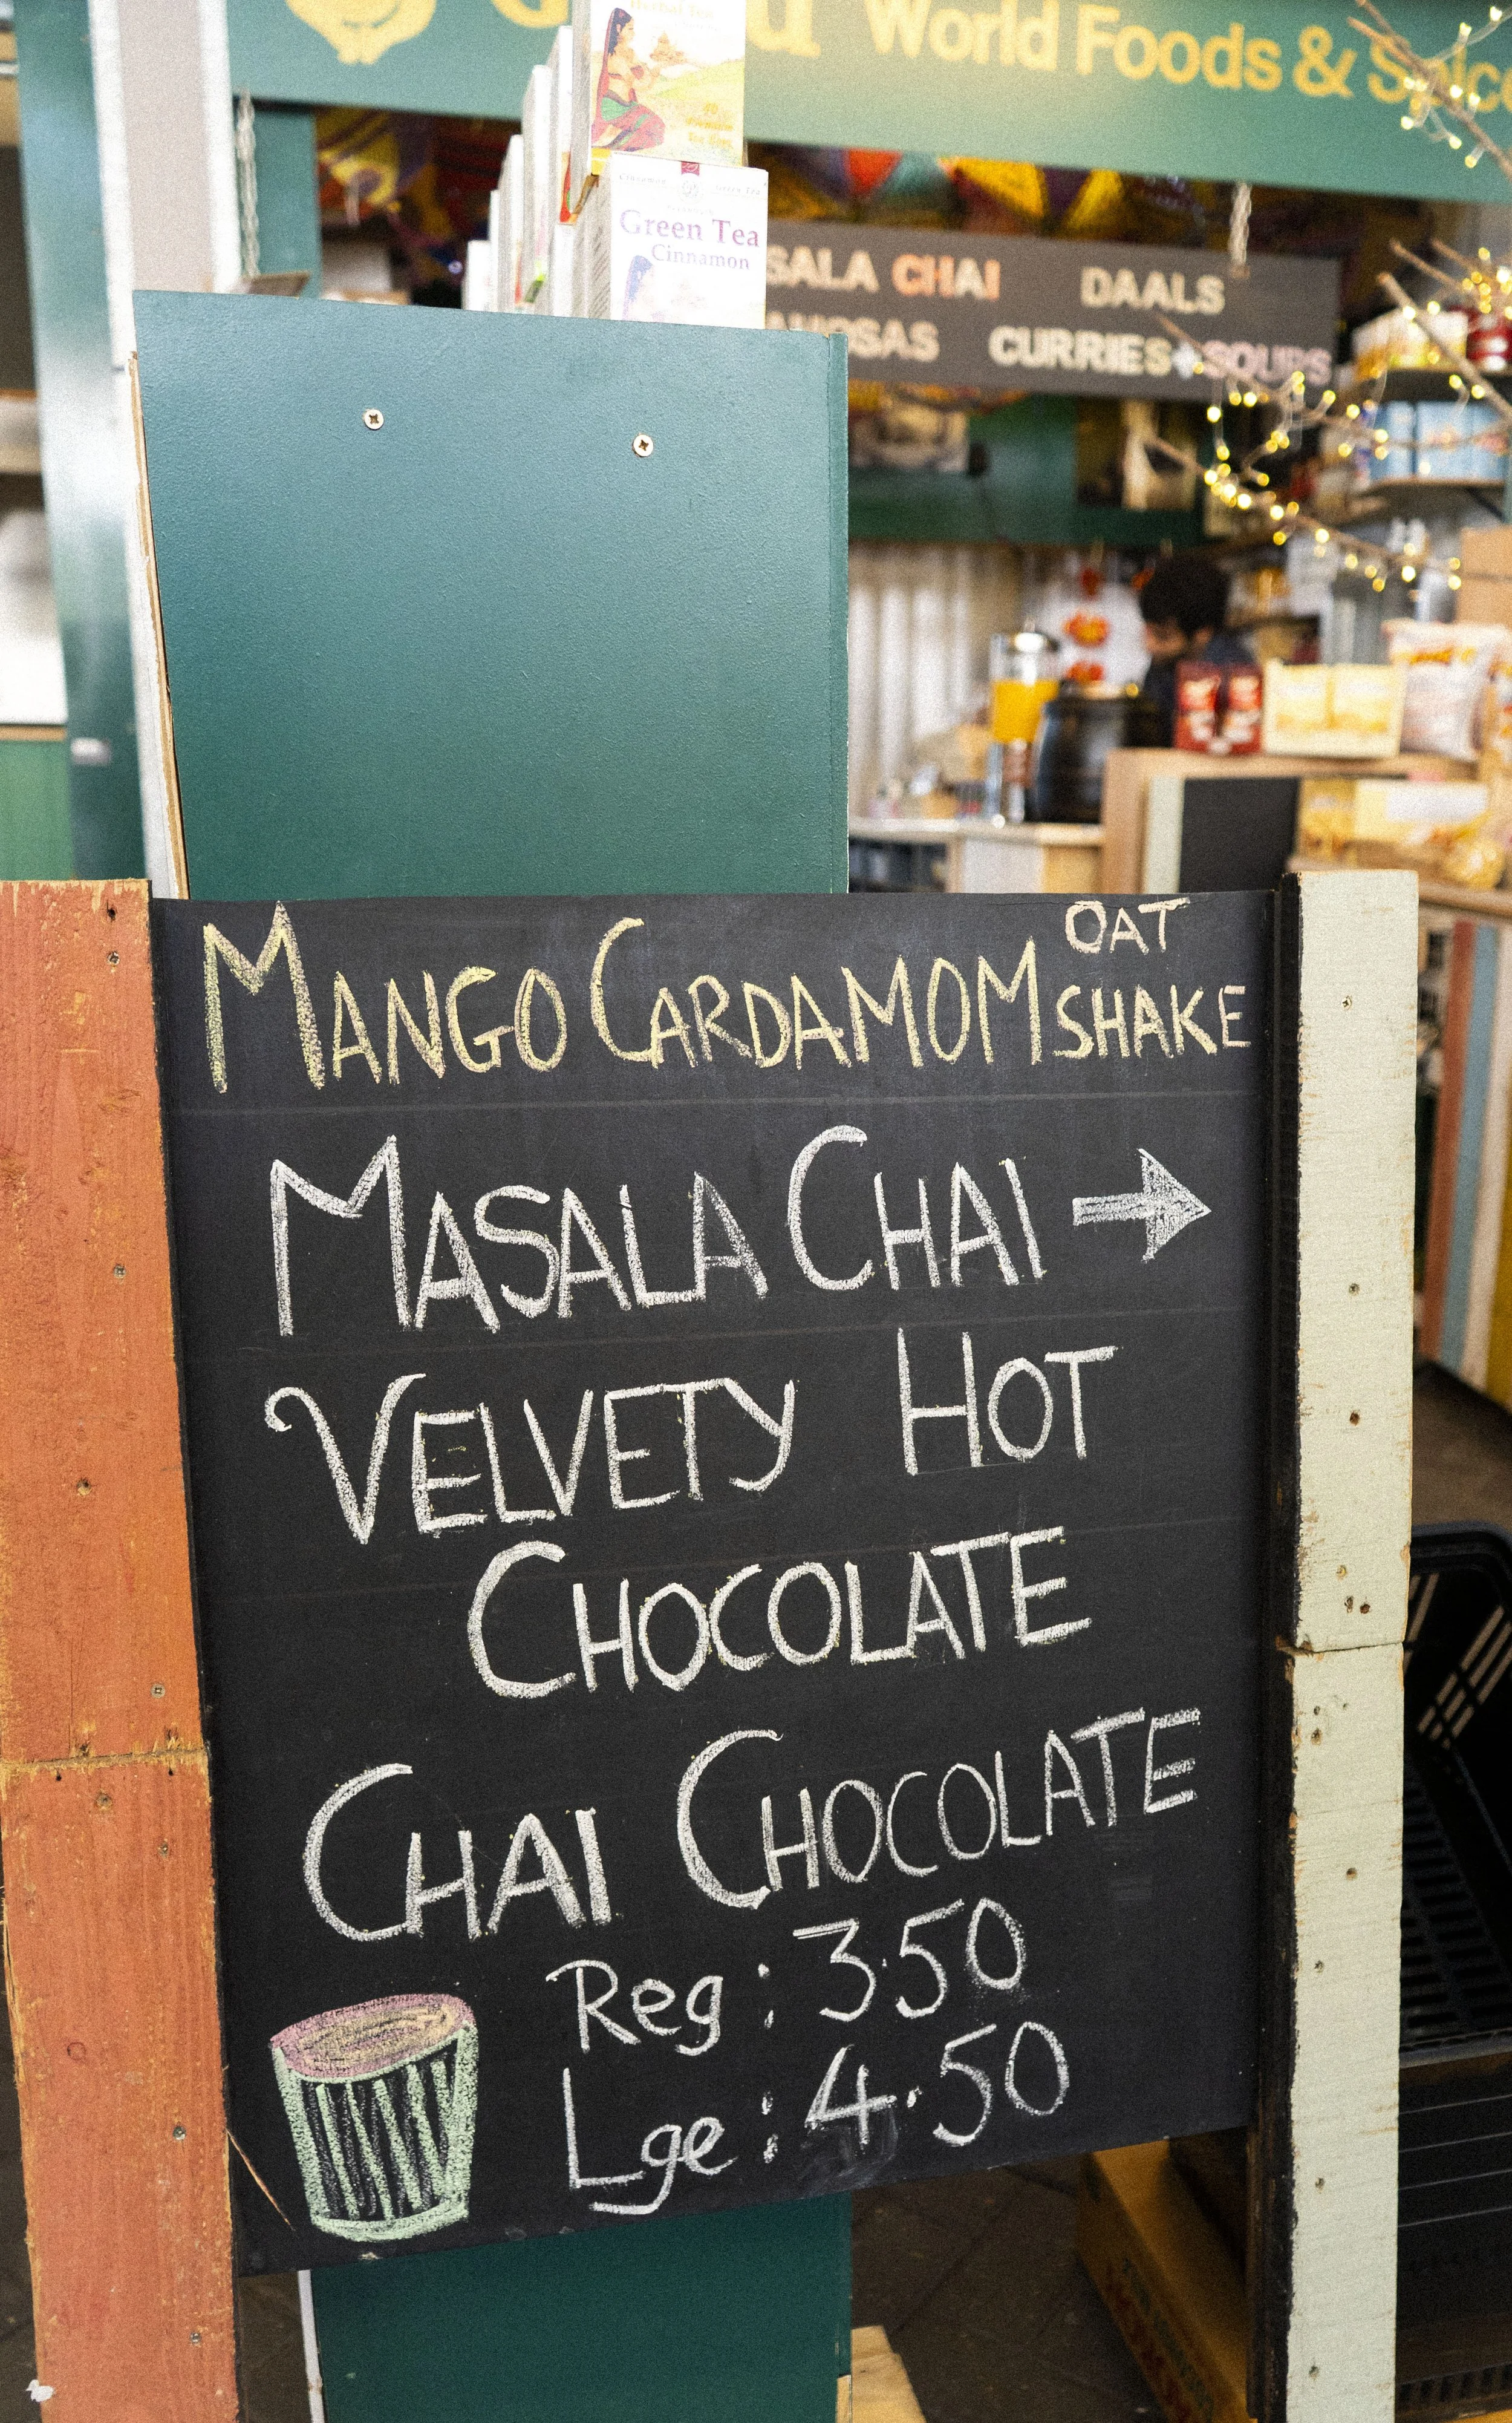 World Foods &
Green Tea
Cinnamon
CHAI DAALS
CURRIES + SOUPS
MANGO CARDAMOM OAT SHAKE
MASALA CHAI →
VELVETY HOT
CHOCOLATE
CHAI CHOCOLATE
Reg: 3.50
Lge: 4.50